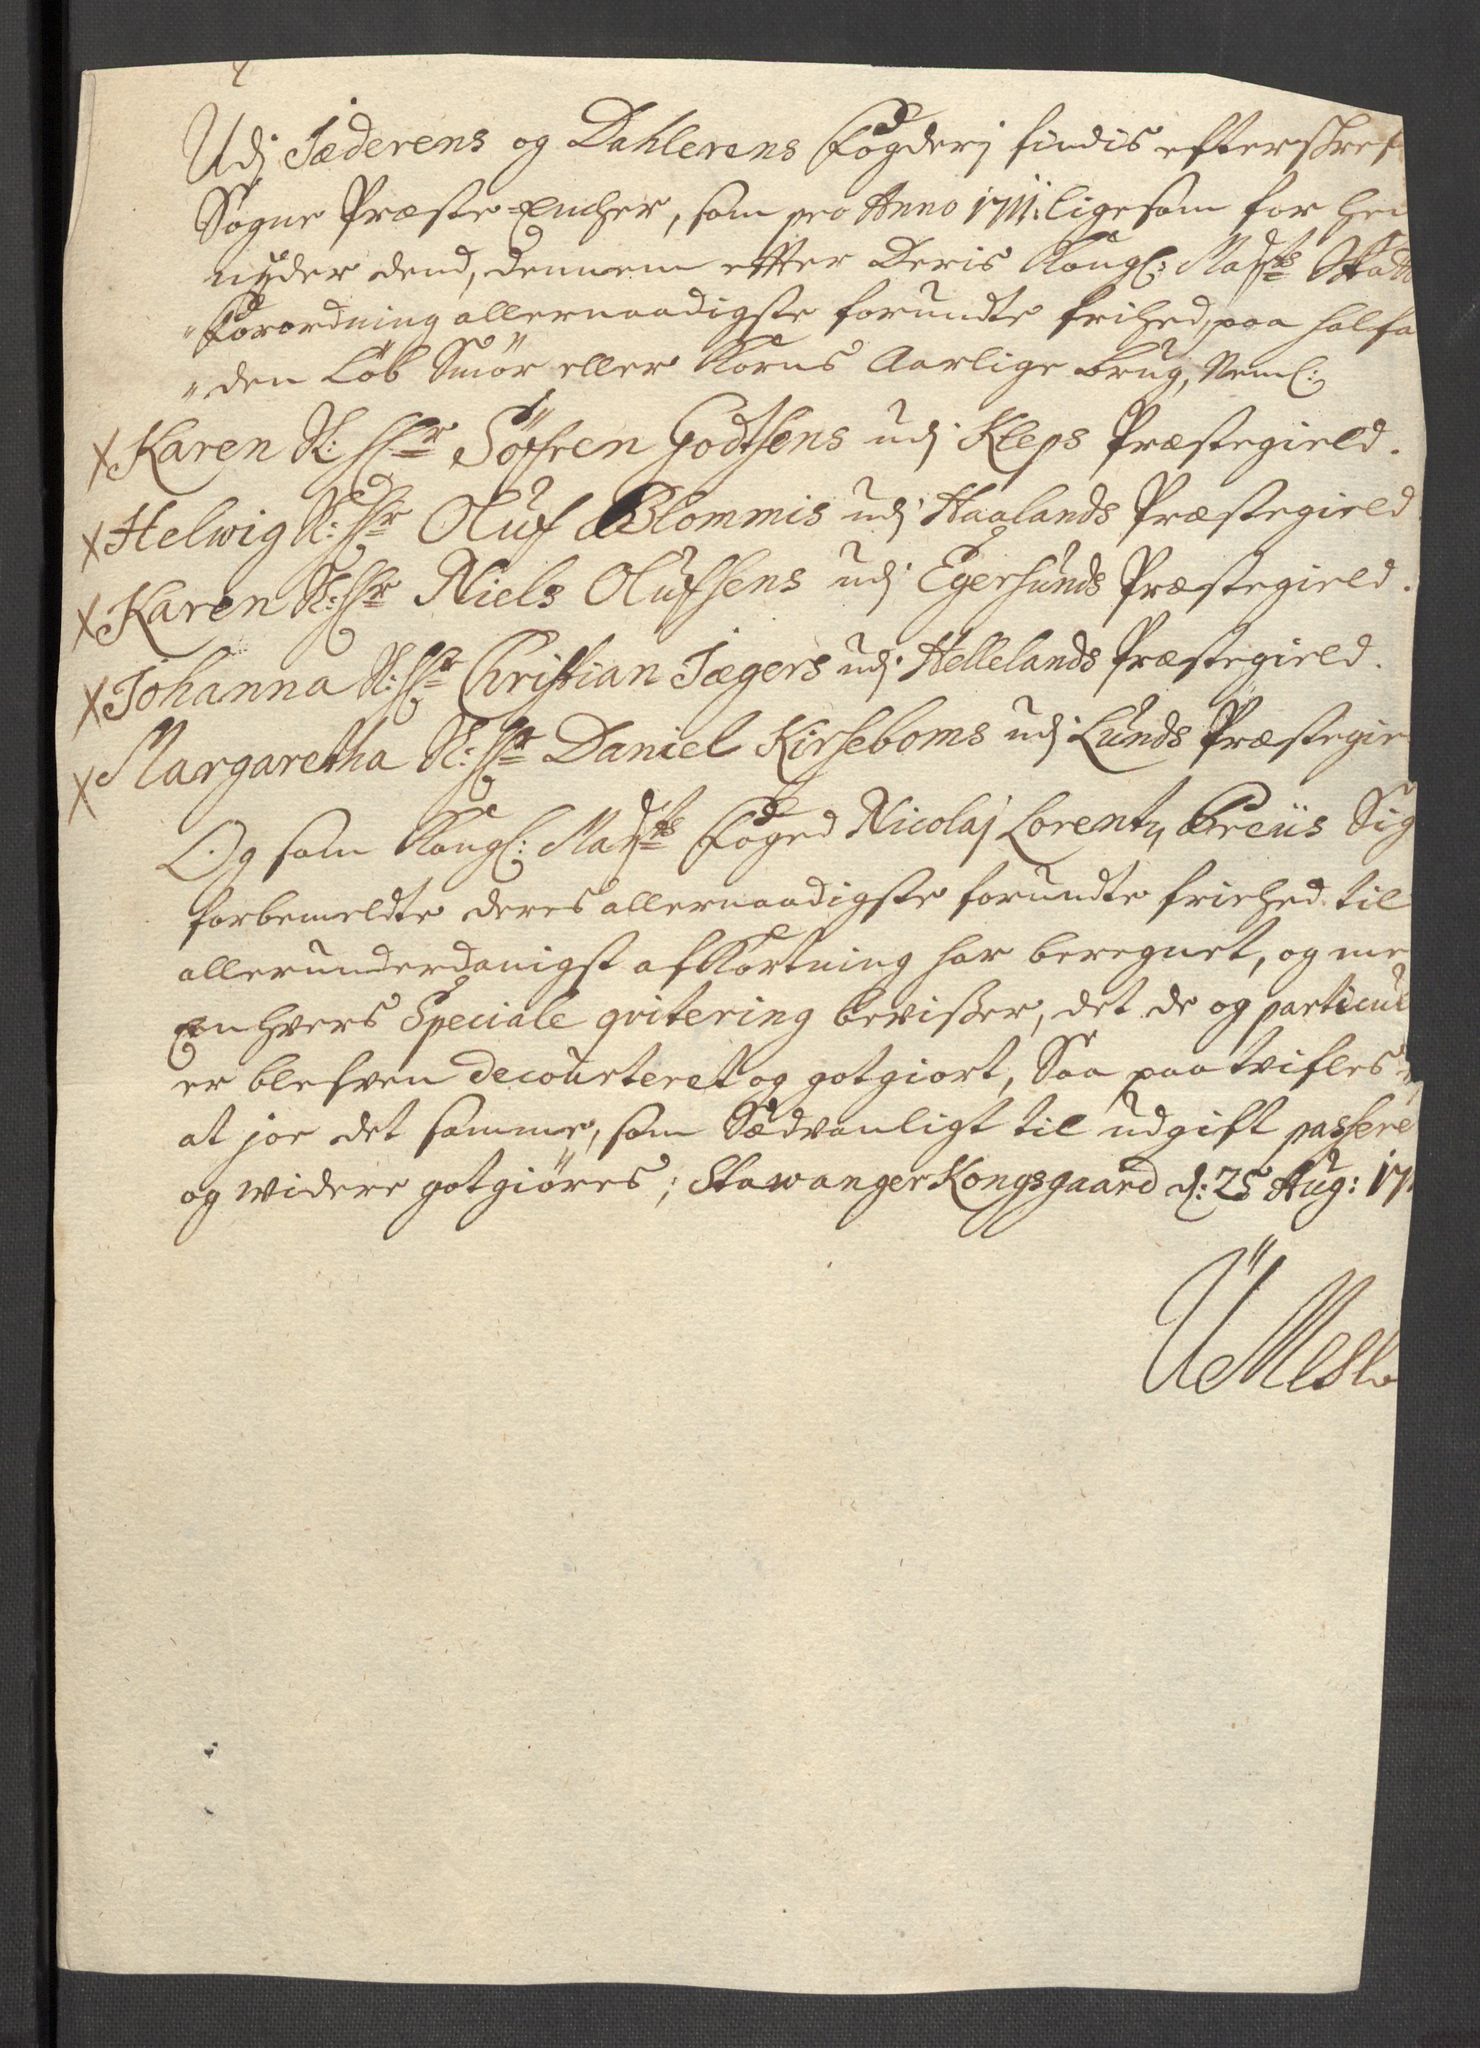 Udj Jæderens og Dahlerens Fogderj findis efterskref
Sogne Præste-Encher, som pro Anno 1711. ligesom for hen
nyder dend, dennem effter Deris Kongl: Mayts Skatt
Forordning allernaadigste forundte frihed, paa halfa
den Løb Smör eller Korns Aarlige brug, Neml:
X Karen Sl: Hr Söfren Godtsens udj Kleps Præstegield.
X Helwig Sl: Hr Oluf Blommis udj Haalands Præstegield
X Karen Sl: Hr Niels Olufsens udj Egersunds Præstegield.
X Johanna Sl: Hr Christian Jægers udj Hellelands Præstegield.
X Margaretha Sl: Hr Daniel Kirseboms udj Lunds Præstegie
Og som Kongl: Mayts Foged Nicolaj Lorentz Preüs Sig
forbemeldte deres allernaadigste forundte friehed til
allerunderdanigst afkortning har beregnet, og me
Enhvers Speciale qvitering bevisser, det de og particul
er blefven decourteret og gotgiort, Saa paatvifles
at joe det samme, som Sædvanligt til udgift passere
og widere gotgiöres; Stawanger Kongsgaard d: 25 Aug: 171